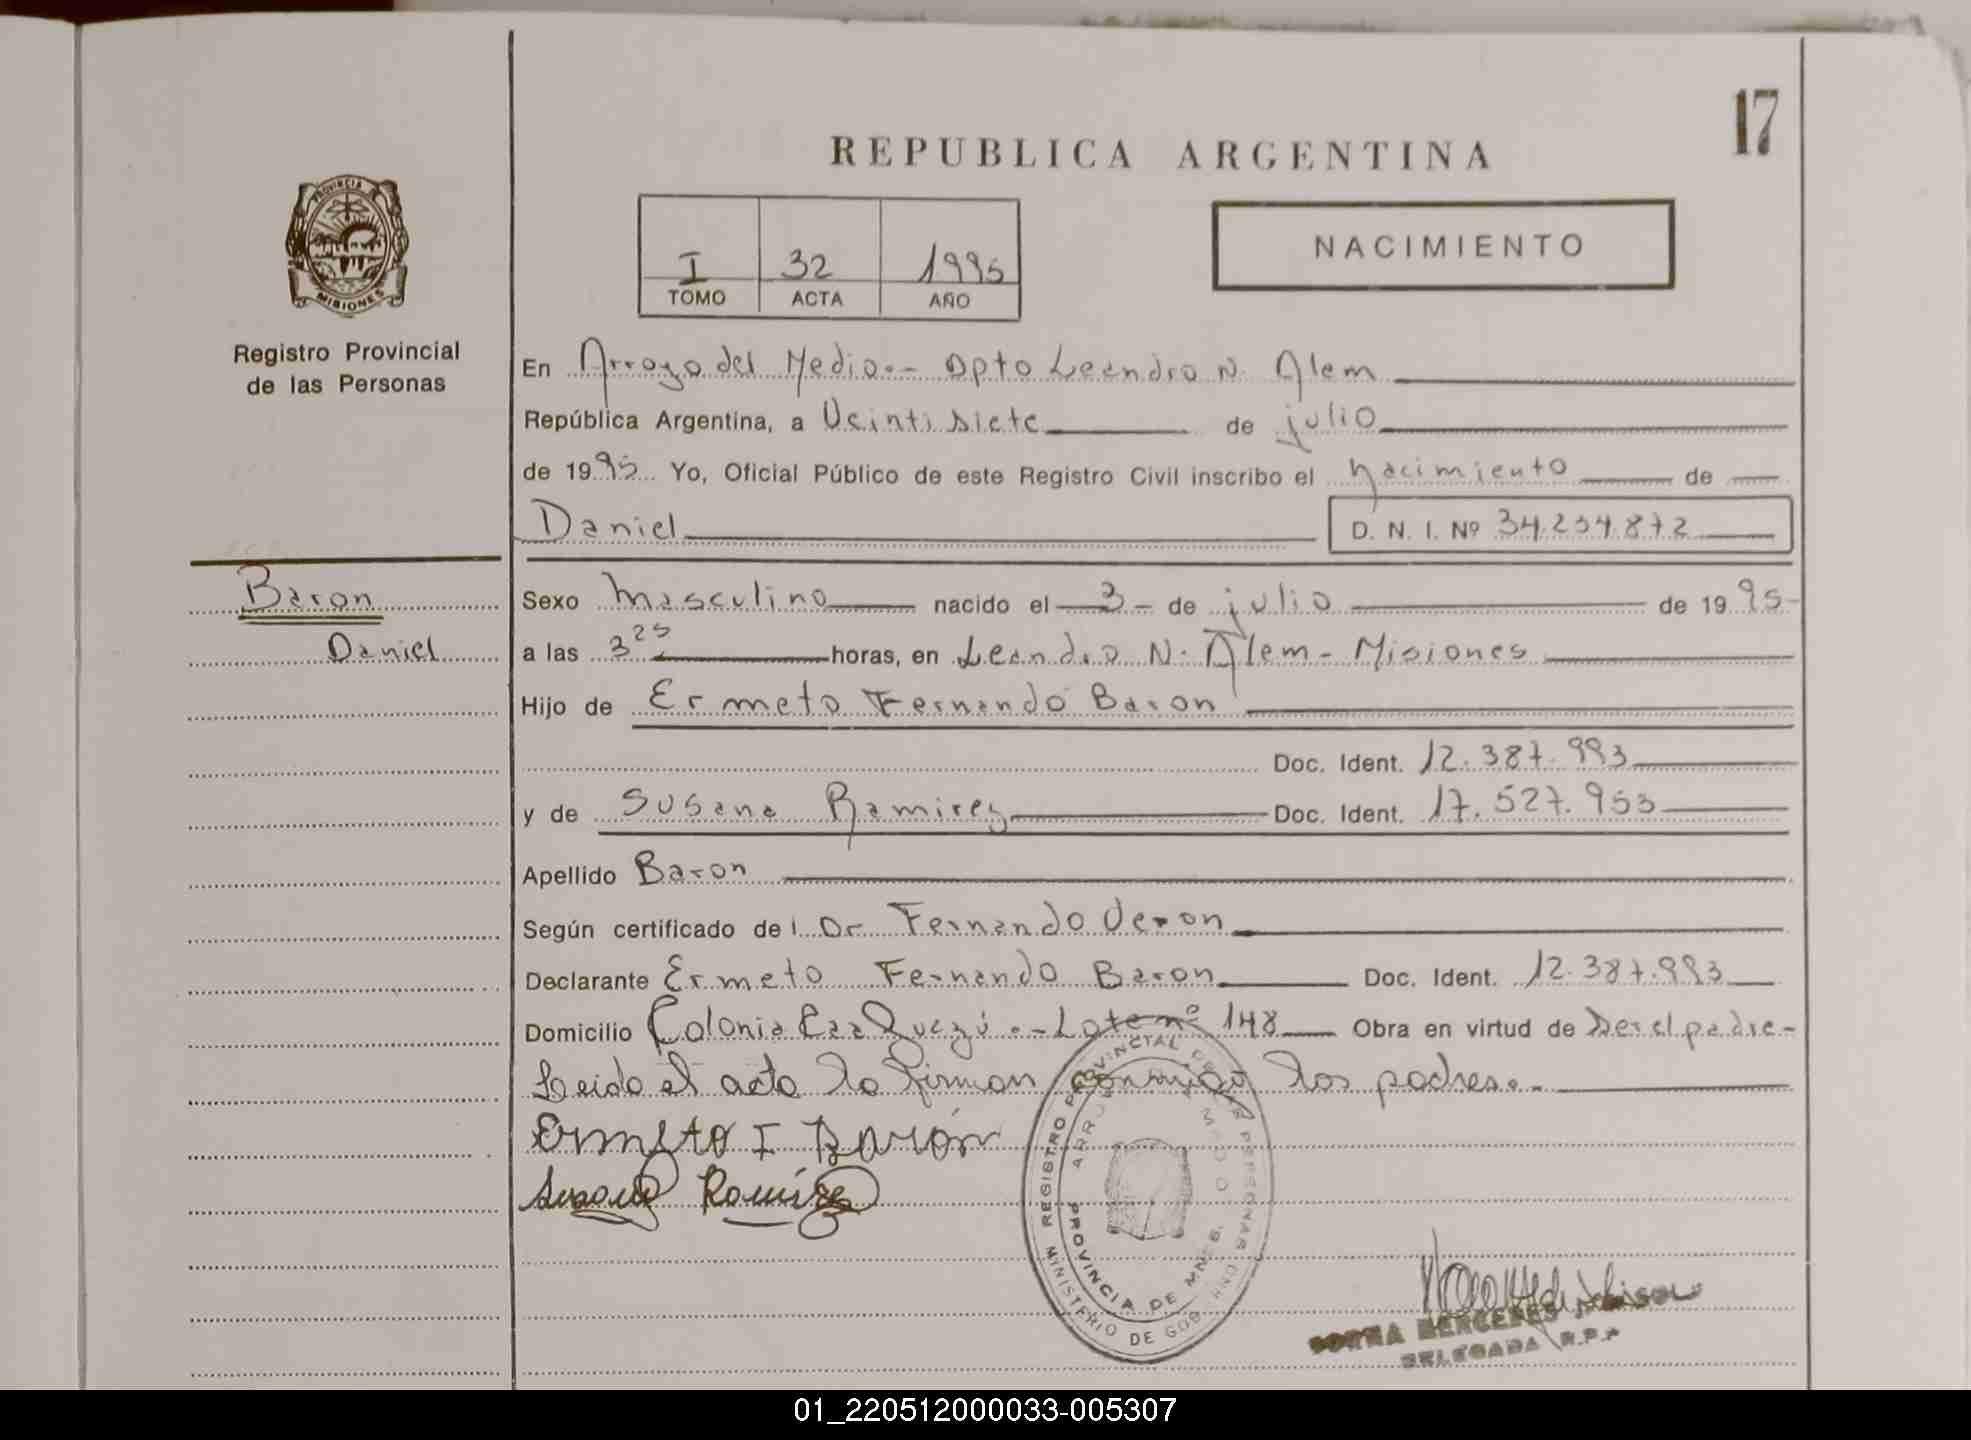 17
REPUBLICA ARGENTINA
PROVINCIA DE
MISIONES
Registro Provincial
de las Personas
I 32 1995
TOMO ACTA AÑO
NACIMIENTO
En Arroyo del Medio.- Dpto Leandro N. Alem
República Argentina, a Veintisiete de julio
de 1995 Yo, Oficial Público de este Registro Civil inscribo el nacimiento de
Daniel D. N. I. Nº 34.254.872
Baron
Daniel
Sexo Masculino nacido el 3 - de julio de 1995-
a las 3 25 horas, en Leandro N. Alem - Misiones
Hijo de Ermeto Fernando Baron
Doc. Ident. 12.387.993
y de Susana Ramirez Doc. Ident. 17.527.953
Apellido Baron
Según certificado de Dr Fernando Veron
Declarante Ermeto Fernando Baron Doc. Ident. 12.387.993
Domicilio Colonia Caa Guazú.- Lote nº 148 Obra en virtud de Ser el padre-
Leido el acta la firman conmigo los padres.-
Ermeto F Barón
Susana Ramírez
REGISTRO PROVINCIAL DE LAS PERSONAS
MINISTERIO DE GOBIERNO
PROVINCIA DE MNES.
MERCEDES
DELEGADA R.P.P
01_220512000033-005307